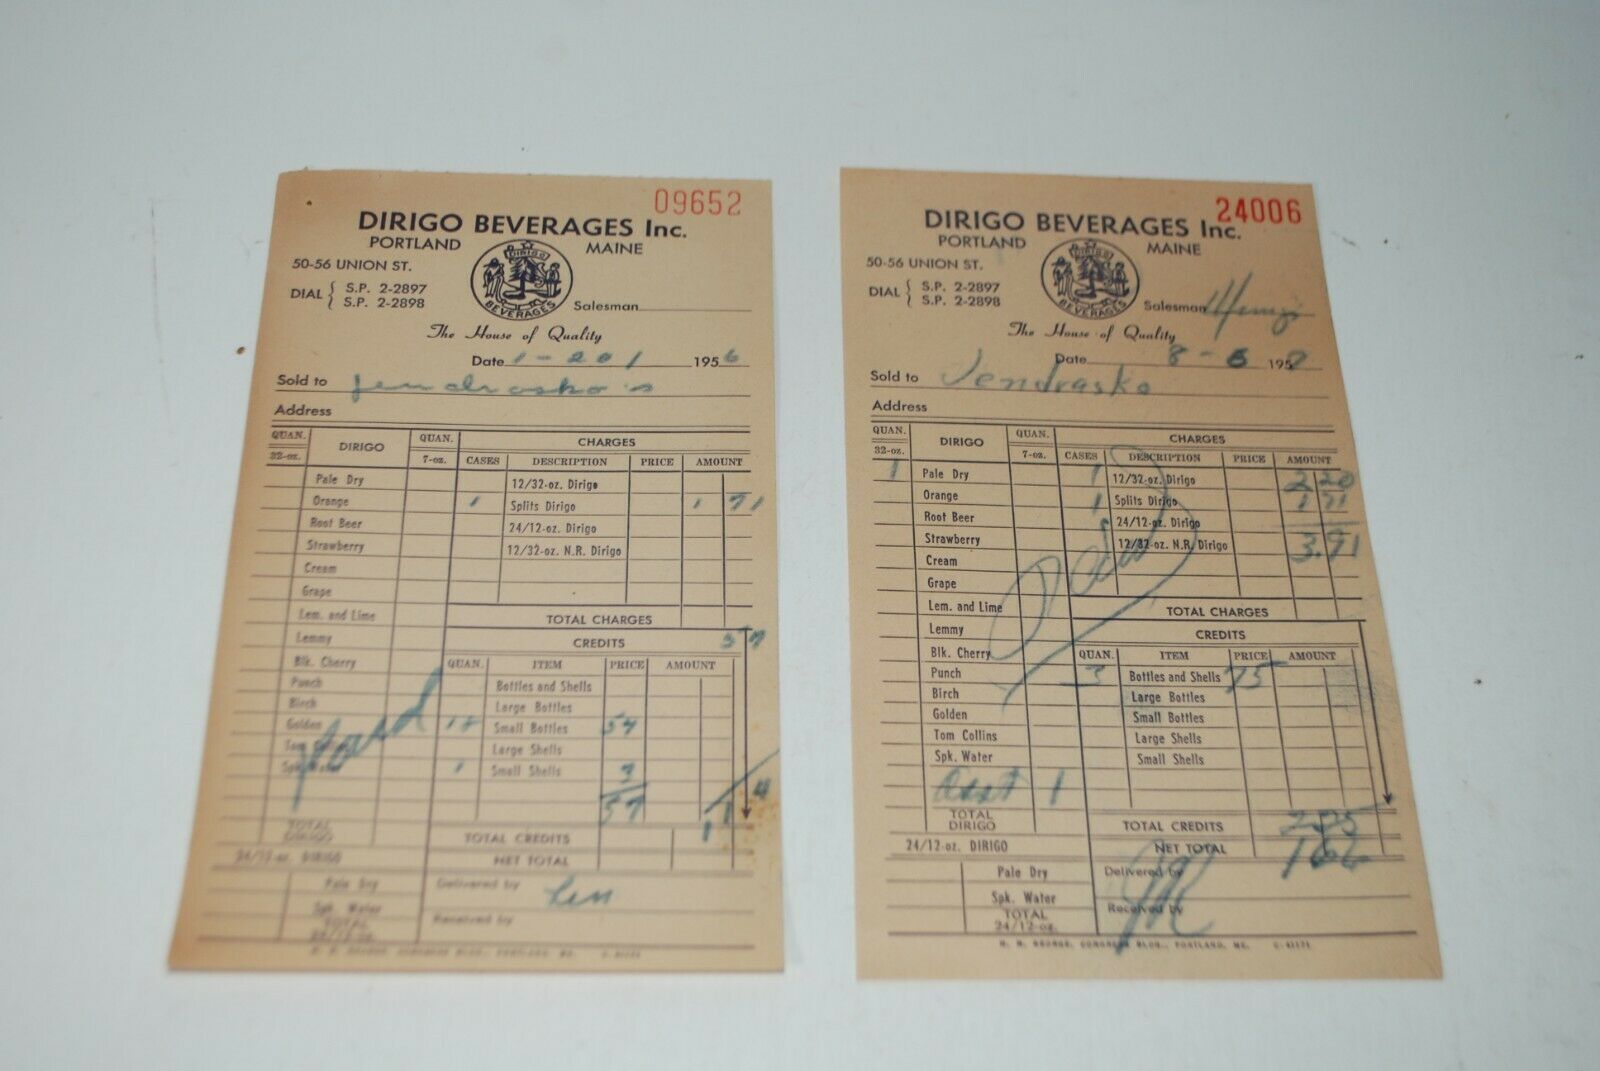 09652
DIRIGO BEVERAGES Inc.
PORTLAND MAINE
50-56 UNION ST.
DIAL { S.P. 2-2897
S.P. 2-2898
DIRIGO
BEVERAGES
Salesman
The House of Quality
Date 1-20 1956
Sold to Jendrasko's
Address
QUAN. DIRIGO QUAN. CHARGES
32-oz. 7-oz. CASES DESCRIPTION PRICE AMOUNT
Pale Dry 12/32-oz. Dirigo
Orange 1 Splits Dirigo 1 71
Root Beer 24/12-oz. Dirigo
Strawberry 12/32-oz. N.R. Dirigo
Cream
Grape
Lem. and Lime TOTAL CHARGES
Lemmy CREDITS 57
Blk. Cherry QUAN. ITEM PRICE AMOUNT
Punch Bottles and Shells
Birch Large Bottles
Golden Small Bottles 54
Tom Collins Large Shells
Spk. Water 1 Small Shells 3
57 1 14
TOTAL DIRIGO TOTAL CREDITS
24/12-oz. DIRIGO NET TOTAL
Pale Dry Delivered by Len
Spk. Water
TOTAL Received by
24/12-oz.
M. M. GEORGE, CONGRESS BLDG., PORTLAND, ME.
24006
DIRIGO BEVERAGES Inc.
PORTLAND MAINE
50-56 UNION ST.
DIAL { S.P. 2-2897
S.P. 2-2898
DIRIGO
BEVERAGES
Salesman
The House of Quality
Date 8-6 195
Sold to Jendrasko
Address
QUAN. DIRIGO QUAN. CHARGES
32-oz. 7-oz. CASES DESCRIPTION PRICE AMOUNT
1 Pale Dry 1 12/32-oz. Dirigo 2 20
Orange 1 Splits Dirigo 1 71
Root Beer 24/12-oz. Dirigo
Strawberry 12/32-oz. N.R. Dirigo 3.91
Cream
Paid
Grape
Lem. and Lime TOTAL CHARGES
Lemmy CREDITS
Blk. Cherry QUAN. ITEM PRICE AMOUNT
Punch 3 Bottles and Shells 75
Birch Large Bottles
Golden Small Bottles
Tom Collins Large Shells
Spk. Water Small Shells
Asst 1
TOTAL DIRIGO TOTAL CREDITS 2.25
24/12-oz. DIRIGO NET TOTAL 166
Pale Dry Delivered by
Spk. Water
TOTAL Received by
24/12-oz.
M. M. GEORGE, CONGRESS BLDG., PORTLAND, ME. C-41171